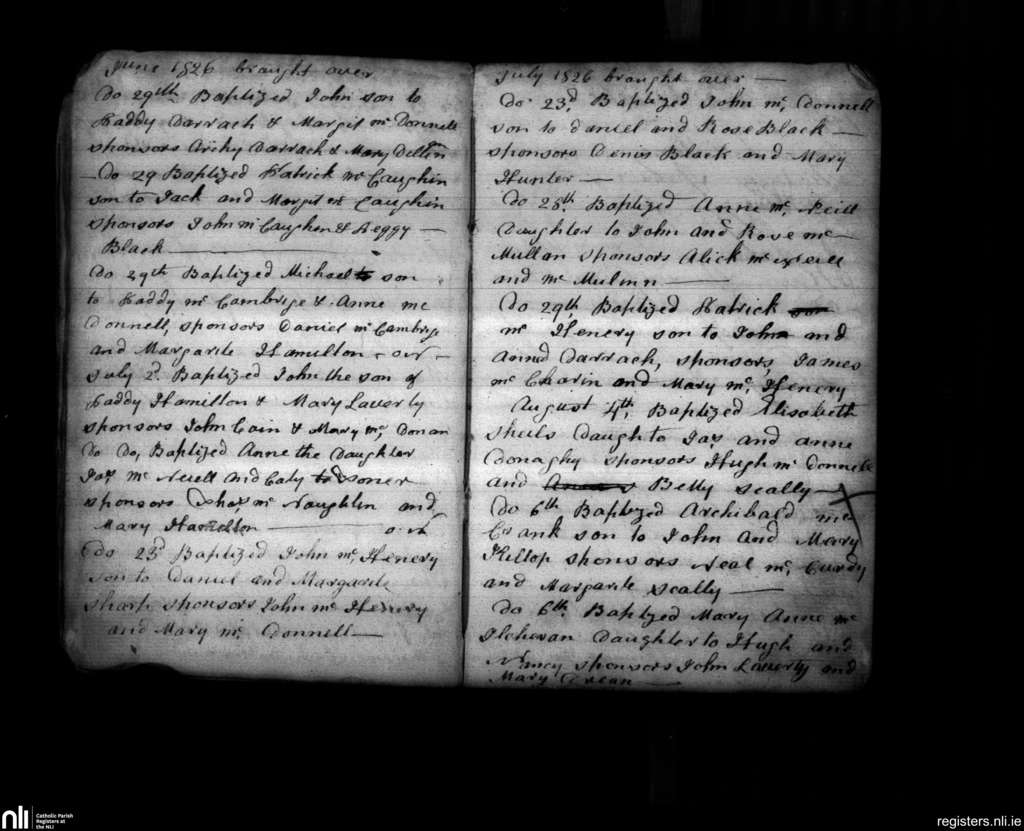 June 1826 brought over
Do 29th Baptized John son to
Paddy Darrach & Margit mc Donnell
sponsors Archy Darrach & Mary Dellin
Do 29 Baptized Patrick mc Caughin
son to Jack and Margit mc Caughin
sponsors John mc Caughen & Peggy
Black
Do 29th Baptized Michael son
to Paddy mc Cambrige & Anne mc
Donnell, sponsors Daniel mc Cambrige
and Margarite Hamulton
July 2d. Baptized John the son of
Paddy Hamilton & Mary Laverty
sponsors John Cain & Mary mc, Donan
Do Do, Baptized Anne the Daughter
Jas mc Neuell and Caty
sponsors Chas, mc Naughlin and
Mary Hamelton
Do 23d Baptized John mc, Henery
son to Daniel and Margarite
sharp sponsors John mc Henery
and Mary mc, Donnell
July 1826 brought over
Do 23d. Baptized John mc, Donnell
son to Daniel and Rose Black
sponsors Denis Black and Mary
Hunter
Do 28th. Baptized Anne mc, Neill
Daughter to John and Rose mc
Mullan sponsors Alick mc Neill
and mc Mulinn
Do 29th, Baptized Patrick
mc Henery son to John and
Anne Darrach, sponsors, James
mc Charin and Mary mc, Henery
August 4th, Baptized Elisabeth
sheils Daugh to Jas, and anne
Donaghy sponsors Hugh mc Donnell
and Betty scally
Do 6th Baptized Archibald mc
Crank son to John and Mary
Killop sponsors Neal mc, Curdy
and Margarite scally
Do 6th. Baptized Mary Anne mc
Ilchevan Daughter to Hugh and
Nancy sponsors John Laverty and
Mary
nli Catholic Parish
Registers at
the NLI
registers.nli.ie